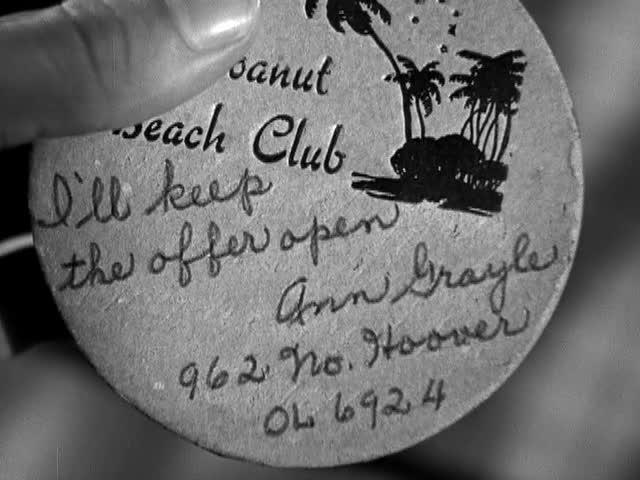 oanut
Beach Club
I'll keep
the offer open
Ann Grayle
962 No. Hoover
OL 6924